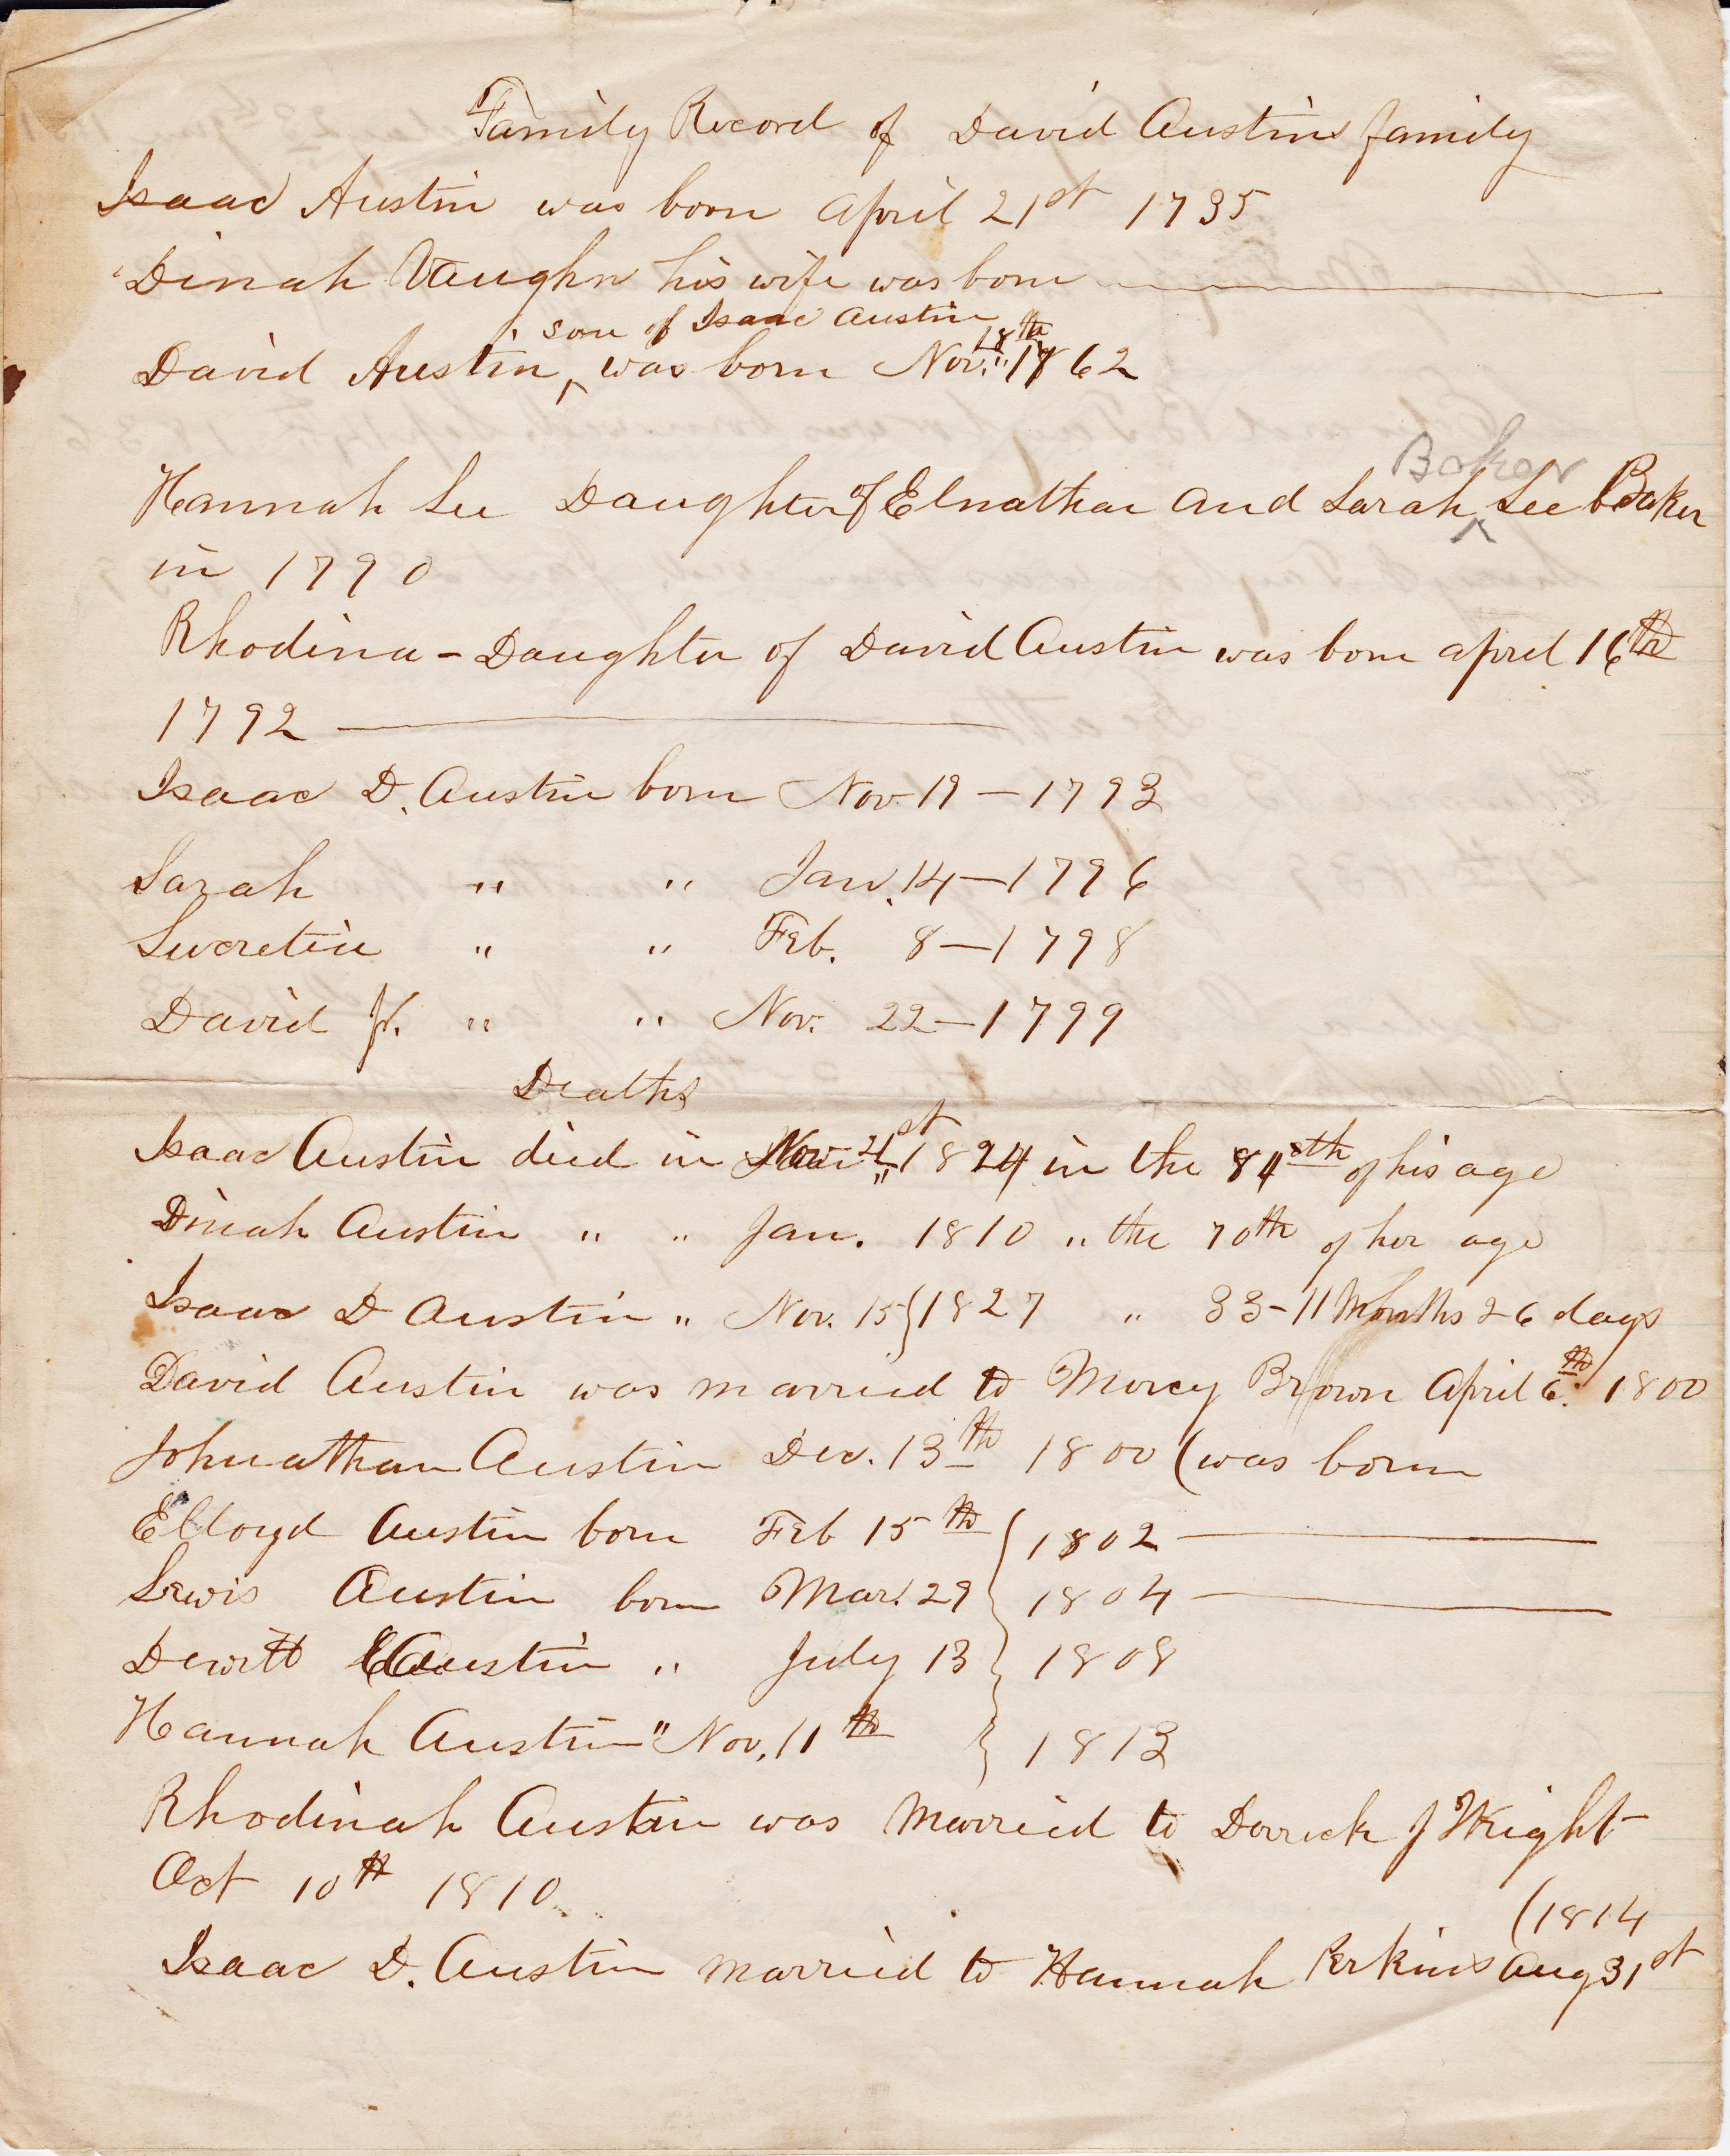 Family Record of David Austins family
Isaac Austin was born April 21st 1735
Dinah Vaughn his wife was born
son of Isaac Austin 18th
David Austin, was born Nov. " 1762
Baker
Hannah Lee Daughter of Elnathan and Sarah ^ Lee Baker
in 1790
Rhodina - Daughter of David Austin was born april 16th
1792
Isaac D. Austin born Nov. 19 - 1793
Sarah " " Jan. 14 - 1796
Lucretia " " Feb. 8 - 1798
David Jr. " " Nov. 22 - 1799
Deaths
Isaac Austin died in Nov 21st 1824 in the 84th of his age
Dinah Austin " " Jan. 1810 " the 70th of her age
Isaac D Austin " Nov. 15 } 1827 " 33 - 11 Months 26 days
David Austin was married to Mercy Brown April 6th 1800
Johnathan Austin Dec. 13th 1800 (was born
Elloyd Austin born Feb 15th { 1802
Lewis Austin born Mar. 29 { 1804
Dewitt C Austin " July 13 } 1808
Hannah Austin " Nov. 11th } 1813
Rhodinah Austin was Married to Derrick J Wright
Oct 10th 1810
(1814
Isaac D. Austin married to Hannah Perkins Aug 31st